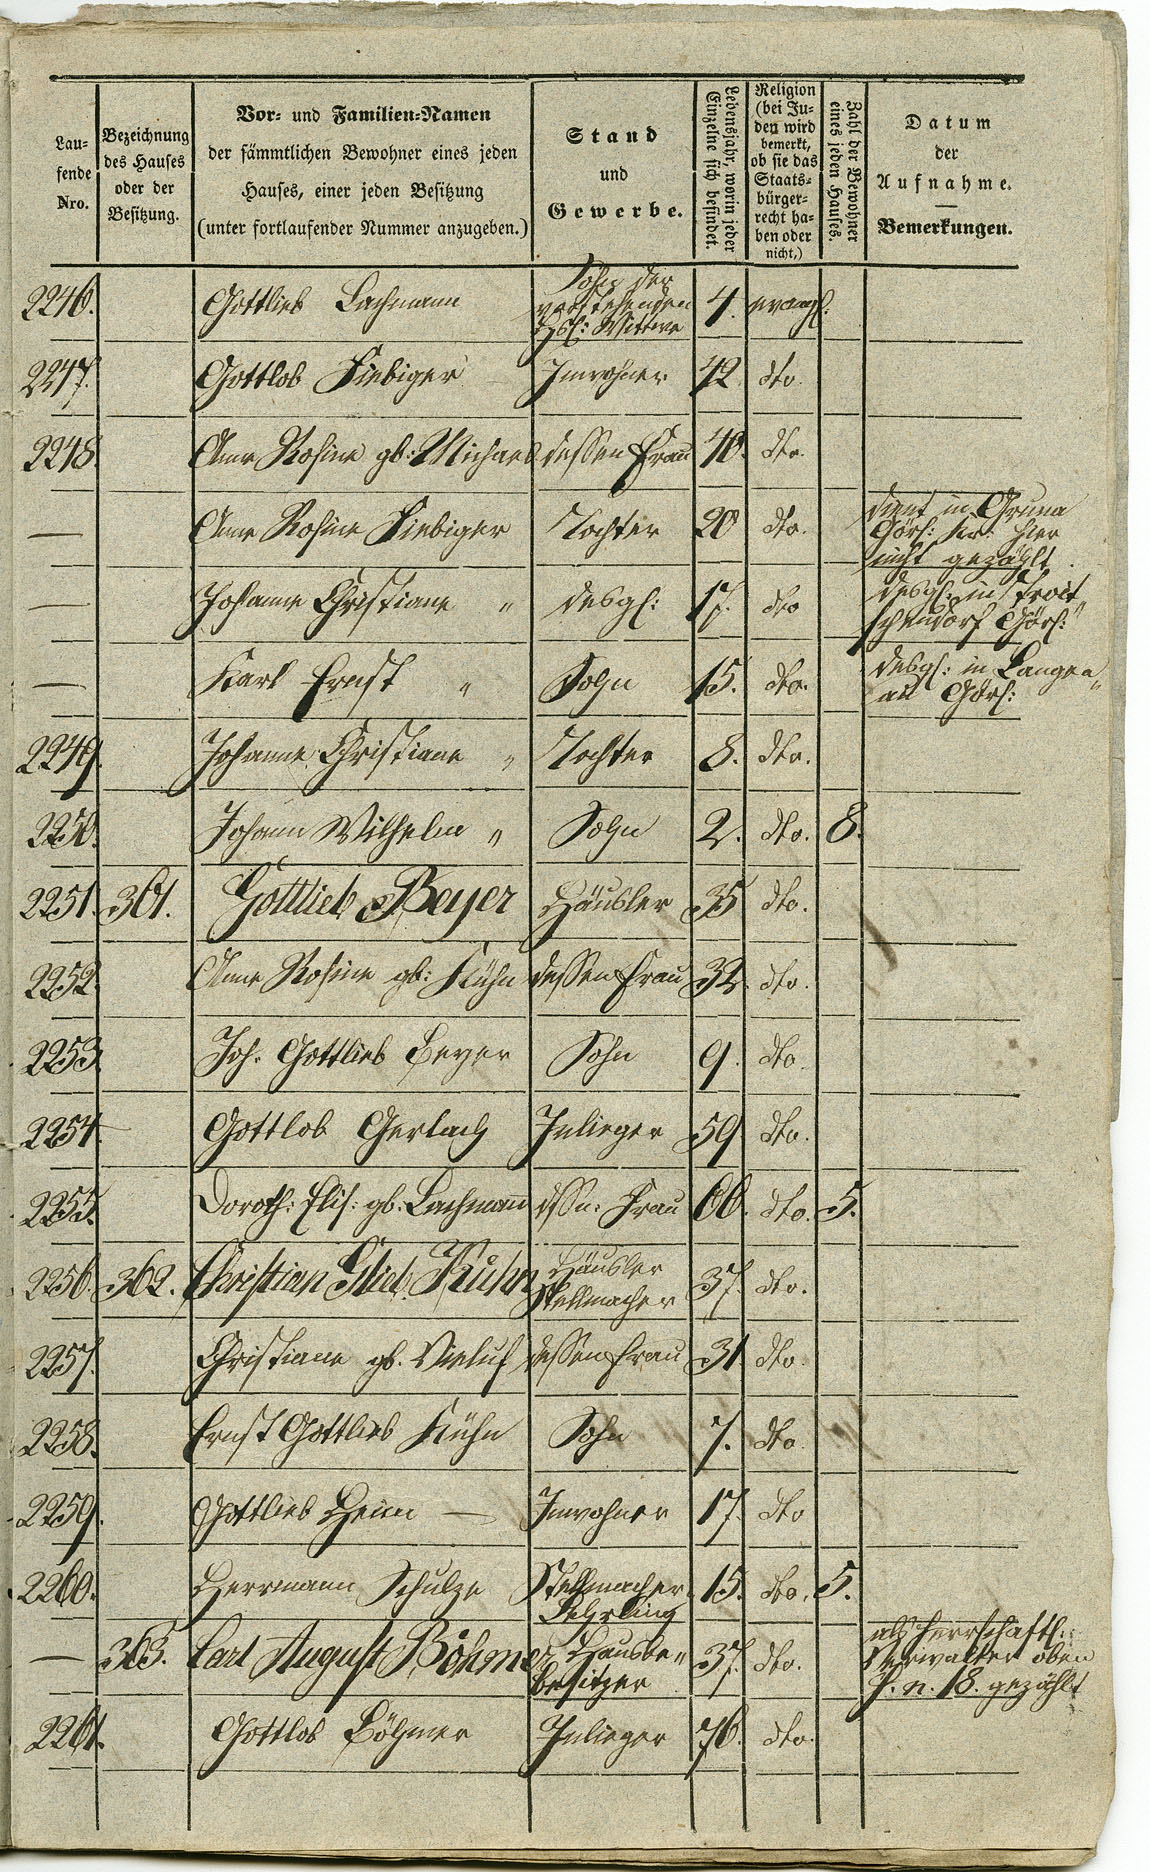 Lau-
fende
Nro.
Bezeichnung
des Hauses
oder der
Besitzung.
Vor- und Familien-Namen
der sämmtlichen Bewohner eines jeden
Hauses, einer jeden Besitzung
(unter fortlaufender Nummer anzugeben.)
Stand
und
Gewerbe.
Lebensjahr, worin jeder
Einzelne sich befindet.
Religion
(bei Ju-
den wird
bemerkt,
ob sie das
Staats-
bürger-
recht ha-
ben oder
nicht,)
Zahl der Bewohner
eines jeden Hauses.
Datum
der
Aufnahme.
Bemerkungen.
2246. Gottlieb Lachmann Sohn der vorstehenden Hsl: Wittwe 4. evangl.
2247. Gottlob Fiebiger Inwohner 42 dto.
2248. Anne Rosine gb: Michael dessen Frau 40. dto.
— Anne Rosine Fiebiger Tochter 20 dto. dient in Gruna Görl: Kr: hier nicht gezählt.
— Johanne Christiane " desgl: 17. dto desgl: in Troit schendorf Görl:
— Karl Ernst " Sohn 15. dto. desgl: in Langen„ au Görl:
2249. Johanne Christiane " Tochter 8. dto.
2250. Johann Wilhelm " Sohn 2. dto. 8.
2251. 361. Gottlieb Beyer Häusler 35 dto.
2252. Anne Rosine gb: Kühn dessen Frau 32. dto.
2253. Joh. Gottlieb Beyer Sohn 9. dto.
2254. Gottlob Gerlach Inlieger 59 dto.
2255. Doroth: Elis: gb: Lachmann dssn: Frau 66. dto. 5.
2256. 362. Christian Glieb Kuhn Häusler Stellmacher 37. dto.
2257. Christiane gb. Vieluf dessen Frau 31 dto.
2258. Ernst Gottlieb Kühn Sohn 7. dto.
2259. Gottlieb — Inwohner 17. dto
2260. Herrmann Schulze Stellmacher Lehrling 15. dto. 5.
— 363. Carl August Böhmer Hausbe„ besitzer 37. dto. als herrschaftl: Verwalter oben P. n. 18. gezählt
2261. Gottlob Böhmer Inlieger 76. dto.